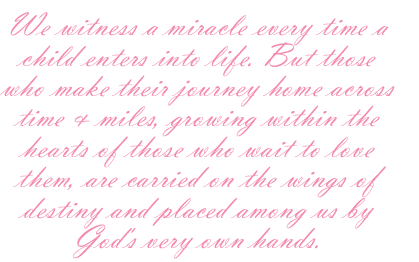 We witness a miracle every time a
child enters into life. But those
who make their journey home across
time & miles, growing within the
hearts of those who wait to love
them, are carried on the wings of
destiny and placed among us by
God's very own hands.